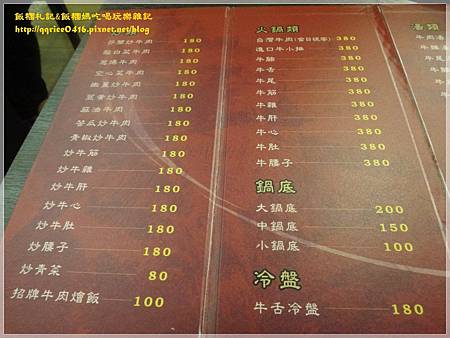 飯糰札記&飯糰媽吃喝玩樂雜記
http://qqrice0416.pixnet.net/blog
沙茶炒牛肉 180
酸白菜牛肉 180
蔥爆牛肉 180
空心菜牛肉 180
嫩薑炒牛肉 180
韭黃炒牛肉 180
麻油牛肉 180
苦瓜炒牛肉 180
青椒炒牛肉 180
炒牛筋 180
炒牛雜 180
炒牛肝 180
炒牛心 180
炒牛肚 180
炒腰子 180
炒青菜 80
招牌牛肉燴飯 100
火鍋類
台灣牛肉 380
進口牛小排 380
牛腩 380
牛舌 380
牛尾 380
牛筋 380
牛雜 380
牛肝 380
牛心 380
牛肚 380
牛腰子 380
鍋底
大鍋底 200
中鍋底 150
小鍋底 100
冷盤
牛舌冷盤 180
湯類
牛肉湯